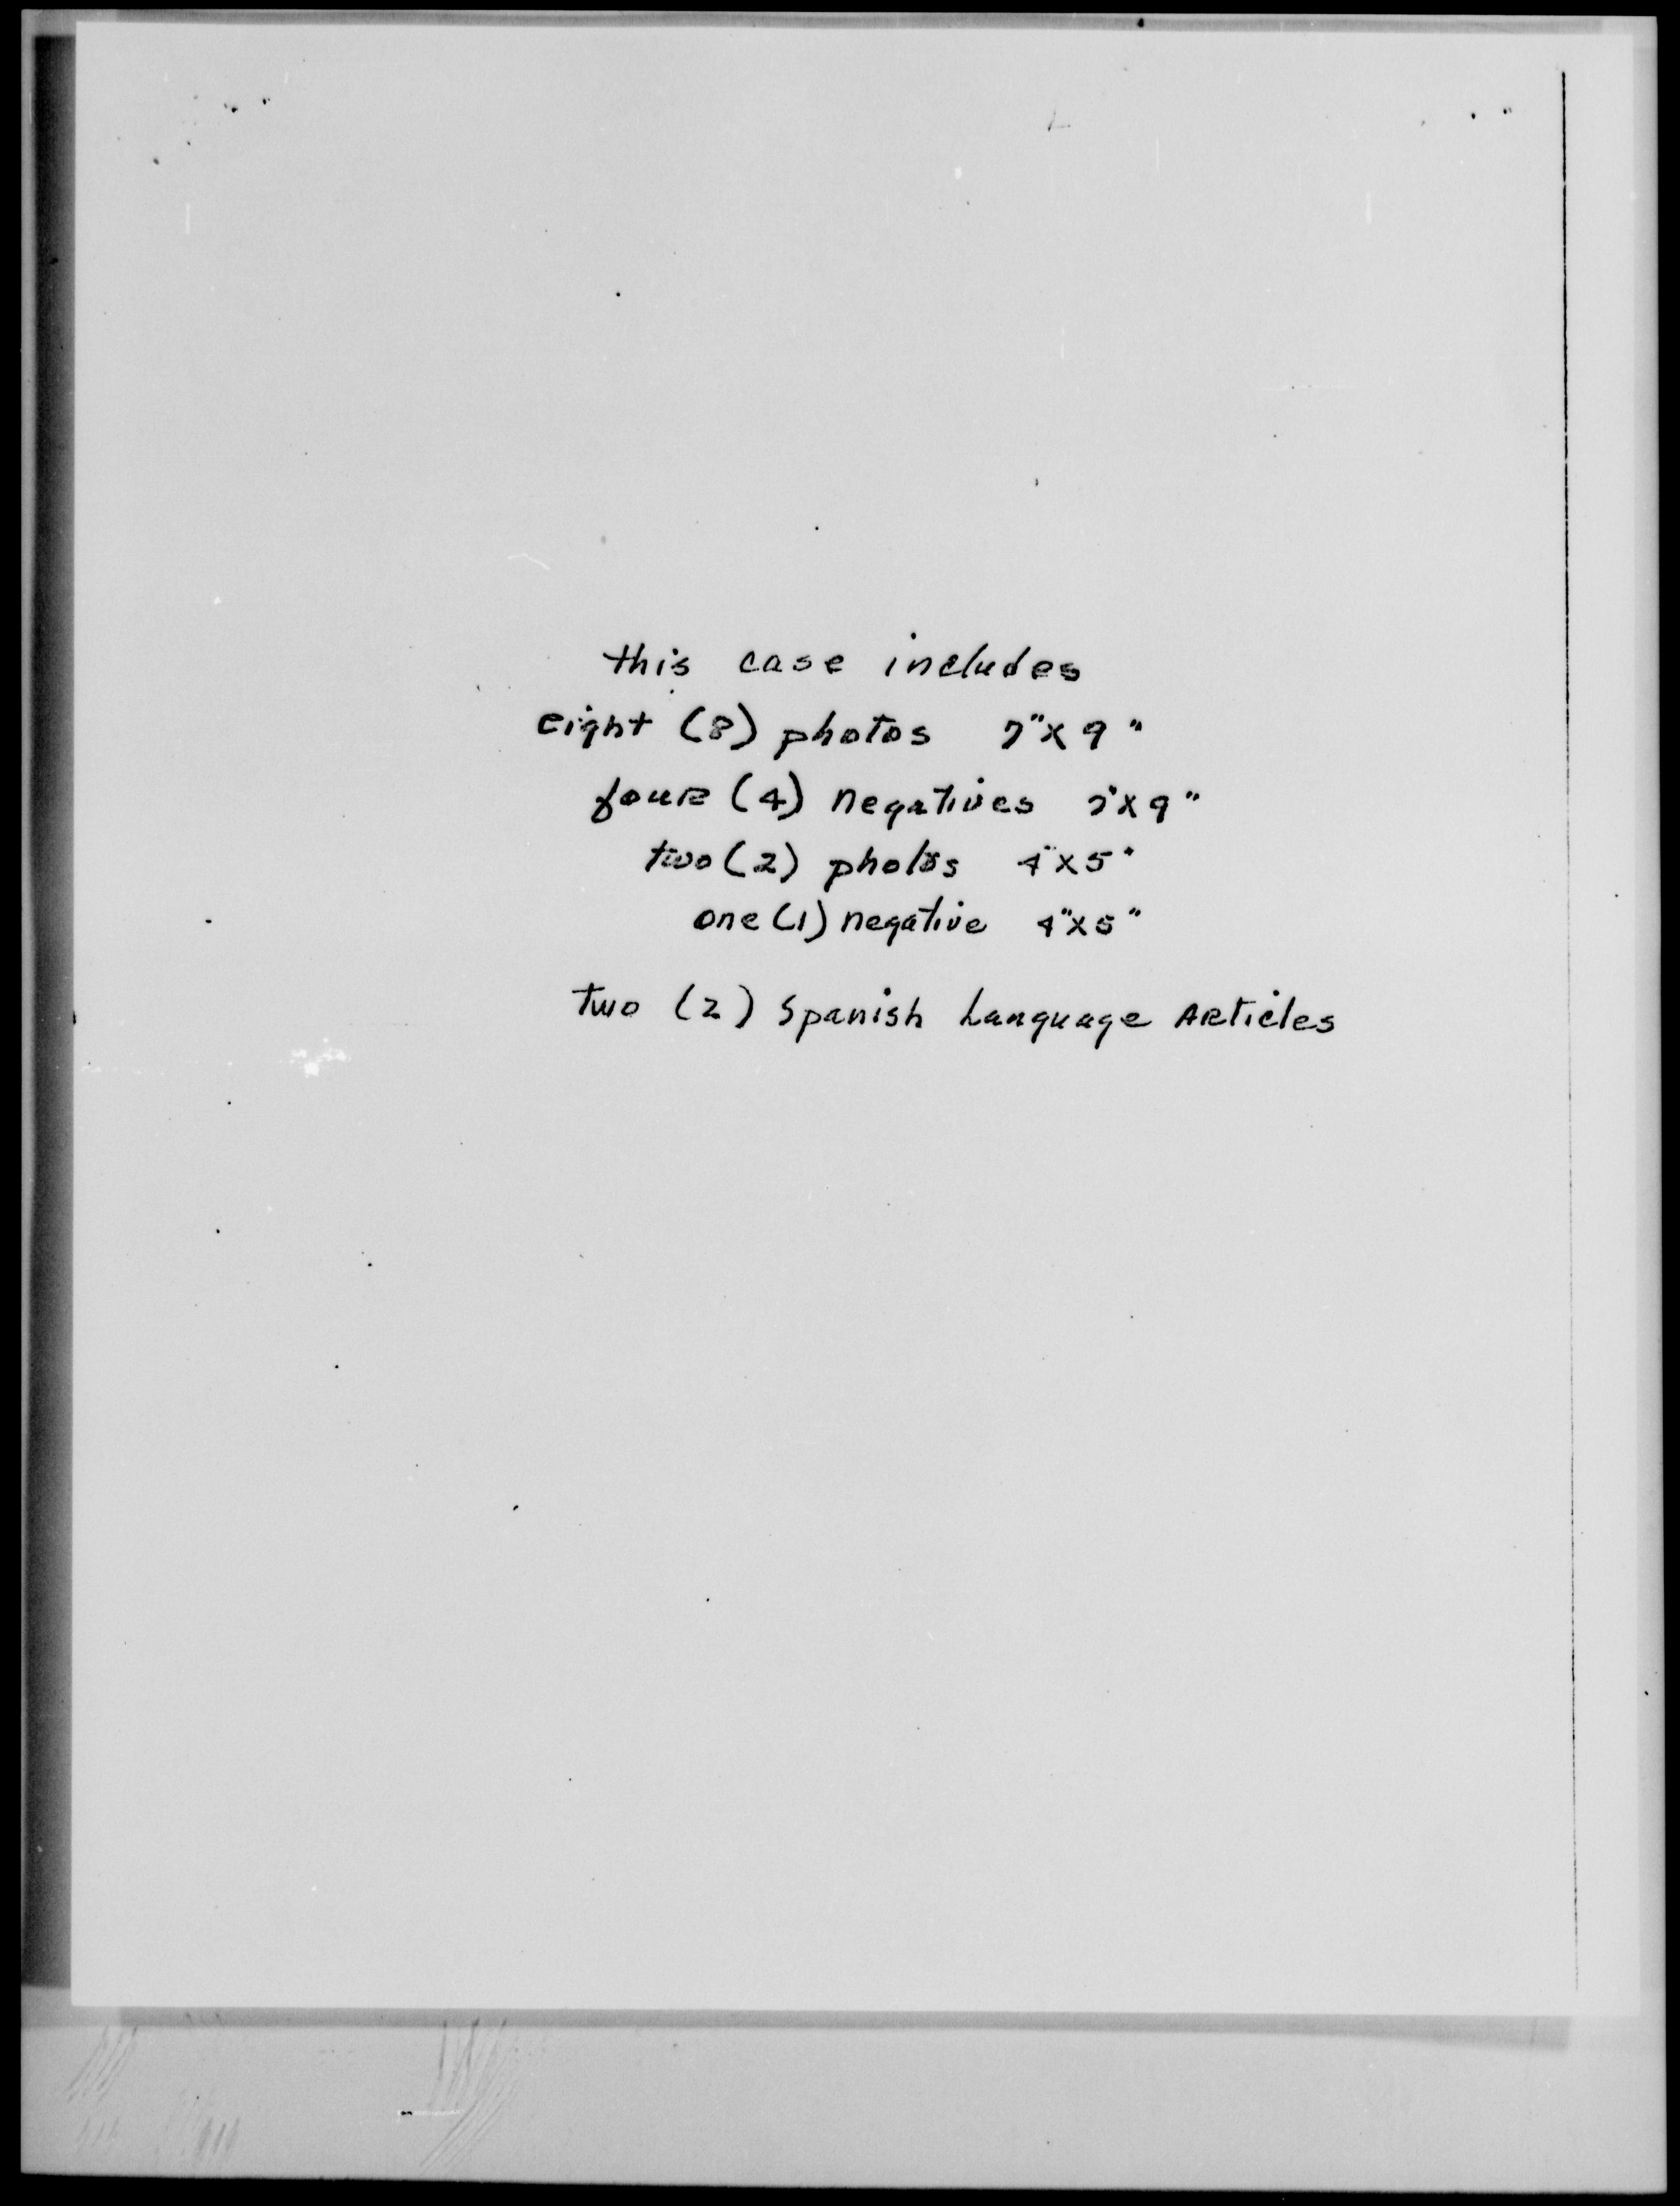 this case includes
eight (8) photos 7" x 9"
four (4) negatives 7" x 9"
two (2) photos 4" x 5"
one (1) negative 4" x 5"
two (2) Spanish Language Articles